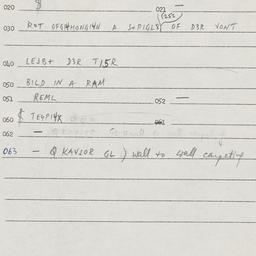 020 $ 021 —
(252)
030 R&T OFGHHONGIHN A S&PIGLS OF D3R VONT
040 LESB+ D3R T15R
050 BILD IN A RAM
051 REML 052 —
060 $ TE4PIHX 061
062 —
063 — Q KAVSOR GL ) wall to wall carpeting